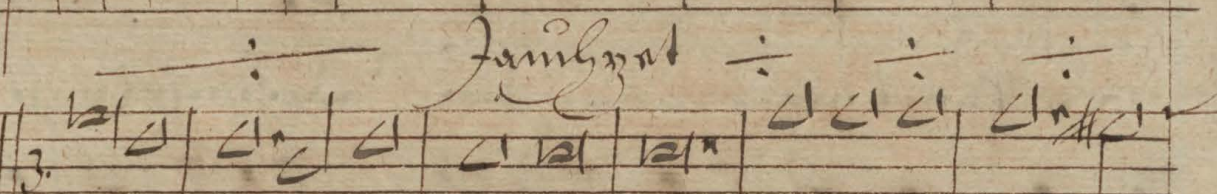 ÷ Jauchzet ÷ ÷ ÷
3.